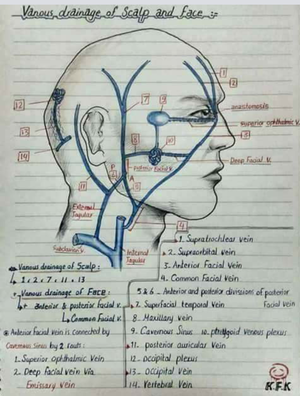 Vanous drainage of Scalp and Face :-
1
2
7
9
12
anastomosis
Superior ophthalmic V.
3
6
10
13
Deep Facial V.
14
Anterior Facial V.
P
A
5
11
External Jugular
4
Subclavian V.
Internal Jugular
Vanous drainage of Scalp :
1, 2, 7, 11, 13
Vanous drainage of FACE :
Anterior & posterior facial v.
Common Facial v.
Anterior Facial vein is connected by
Cavernous Sinus by 2 routs :
1. Superior ophthalmic Vein
2. Deep Facial vein Via
Emissary Vein
1. Supratrochlear vein
2. Supraorbital vein
3. Anterior Facial vein
4. Common Facial vein
5 & 6 - Anterior and posterior divisions of posterior
Facial vein
7. Superfacial temporal Vein
8. Maxillary vein
9. Cavernous Sinus
10. pterygoid venous plexus
11. posterior auricular Vein
12. occipital plexus
13. Occipital Vein
14. Vertebral Vein
K.F.K